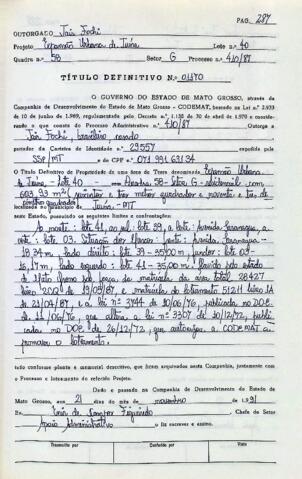 PAG. 287
OUTORGADO Jair Fochi
Projeto Expansão Urbana de Juína Lote no 40
Quadra n.o 58 Setor G Processo n.o 410/87
TÍTULO DEFINITIVO N.o 01170
O GOVERNO DO ESTADO DE MATO GROSSO, através da
Companhia de Desenvolvimento do Estado de Mato Grosso - CODEMAT, baseado na Lei n.o 2.933
10 de junho de 1969, regulamentada pelo Decreto n.o 1.138 de 30 de abril de 1970 e
o que consta do Processo Administrativo n.o 410/87 Outorga a
Jair Fochi, brasileiro, casado
portador da Carteira de Identidade n.o 29557 expedida pela
SSP/MT e do CPF n.o 071 991 631 34
o Título Definitivo de Propriedade de uma área de Terra denominada Expansão Urbana
de Juína, lote 40 - Quadra - 58 - Setor G - residencial com
603,93 m2 (seiscentos e três metros quadrados e noventa e três de
centímetros quadrados)
localizada no Município de Juína - MT
neste Estado, possuindo os seguintes limites e confrontações:
Ao norte: lote 41, ao sul: lote 39, a leste:
oeste: lote 03. Situação dos Marcos: frente:
18,34 m, lado direito: 39 - 35,00 m, fundos: lote 03 -
16,17 m, lado esquerdo: lote 41 - 35,00 m.
de Mato Grosso da área total 28427
livro 2 de 19/03/87, e matrícula do loteamento livro
de 21/04/87 e a lei n.o 3744 de 10/06/76, publicada no D.O.E.
de 11/06/76 que altera a lei n.o 3307 de 18/12/72, publi
cada no DOE de 26/12/72, que autoriza a CODEMAT a
promover o loteamento.
tudo conforme planta e memorial descritivo, que ficam arquivados nesta Companhia, juntamente com
o Processo e loteamento do referido Projeto.
Dado e passado na Companhia de Desenvolvimento do Estado de
Mato Grosso, aos 21 dias do mês de novembro de 1991
Eu de Campos Figueiredo Chefe de Setor
Apoio Administrativo o fiz escrever e assino.
Transcrito por Conferido por Visto